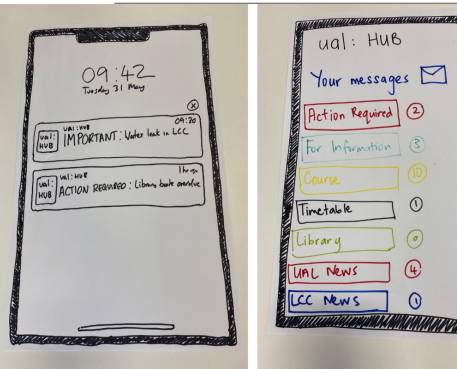 09:42
Tuesday 31 May
ual: HUB
09:30
ual:
HUB
IMPORTANT: Water leak in LCC
ual: HUB
1hr ago
ual:
HUB
ACTION REQUIRED: Library book overdue
ual: HUB
Your messages
Action Required 2
For Information 3
Course 10
Timetable 1
Library 0
UAL News 4
LCC News 1